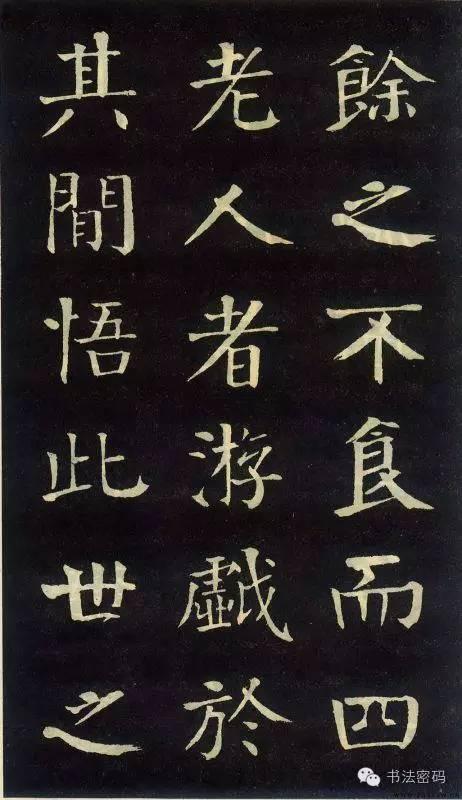 餘之不食而四
老人者游戯於
其間悟此世之
书法密码